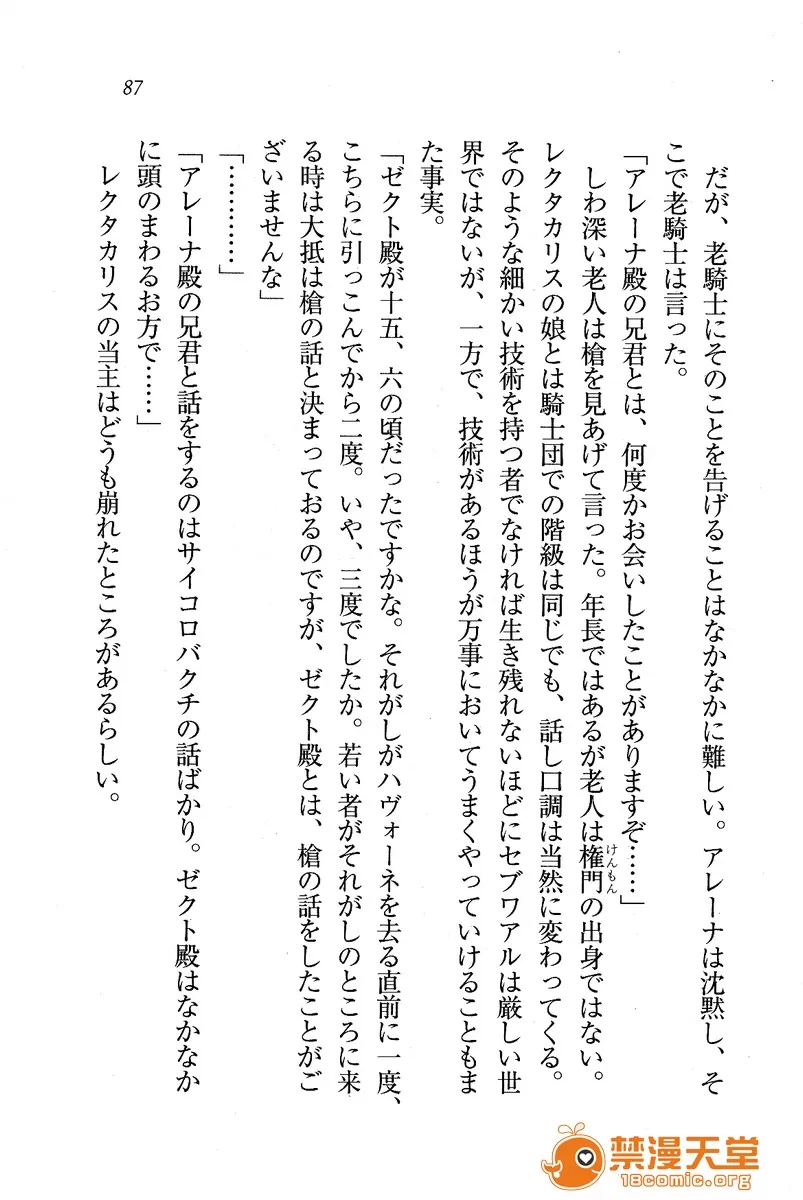 87
だが、老騎士にそのことを告げることはなかなかに難しい。アレーナは沈黙し、そ
こで老騎士は言った。
「アレーナ殿の兄君とは、何度かお会いしたことがありますぞ……」
しわ深い老人は槍を見あげて言った。年長ではあるが老人は権門の出身ではない。
けんもん
レクタカリスの娘とは騎士団での階級は同じでも、話し口調は当然に変わってくる。
そのような細かい技術を持つ者でなければ生き残れないほどにセブワアルは厳しい世
界ではないが、一方で、技術があるほうが万事においてうまくやっていけることもま
た事実。
「ゼクト殿が十五、六の頃だったですかな。それがしがハヴォーネを去る直前に一度、
こちらに引っこんでから二度。いや、三度でしたか。若い者がそれがしのところに来
る時は大抵は槍の話と決まっておるのですが、ゼクト殿とは、槍の話をしたことがご
ざいませんな」
「…………」
「アレーナ殿の兄君と話をするのはサイコロバクチの話ばかり。ゼクト殿はなかなか
に頭のまわるお方で……」
レクタカリスの当主はどうも崩れたところがあるらしい。
禁漫天堂
18comic.org